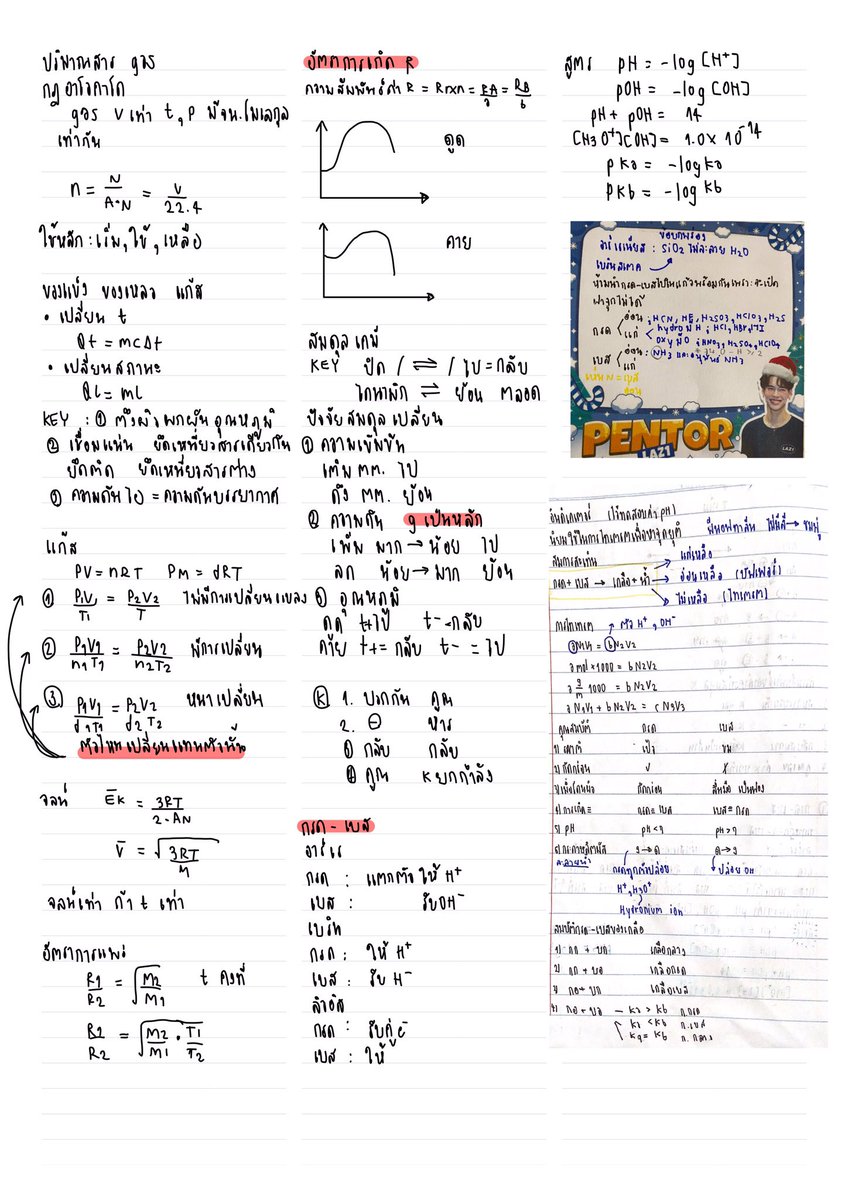 ปริมาณสาร gas
กฎอาโวกาโด
gas V เท่า t, P
เท่ากัน
n = N/A.N = V/22.4
ใช้หลัก : เริ่ม, ใช้, เหลือ
ของแข็ง ของเหลว แก๊ส
• เปลี่ยน t
Qt = mcΔt
• เปลี่ยนสถานะ
Ql = mL
KEY : ① ตึงผิวผกผันอุณหภูมิ
② เชื่อมแน่น ยึดเหนี่ยวสารเดียวกัน
ยึดติด ยึดเหนี่ยวสารต่าง
ความดันไอ = ความดันบรรยากาศ
แก๊ส
PV = nRT PM = dRT
① P1V1/T1 = P2V2/T ไม่มีการเปลี่ยนแปลง
② P1V1/n1T1 = P2V2/n2T2 มีการเปลี่ยน
③ P1V1/d1T1 = P2V2/d2T2 หนาเปลี่ยน
ตัวไหนเปลี่ยนแทนตัวนั้น
จลน์ Ek = 3RT/2.AN
V = √3RT/M
จลน์เท่า ถ้า t เท่า
อัตราการแพร่
R1/R2 = √M2/M1 t คงที่
R2/R2 = √M2/M1 • T1/T2
อัตราการเกิด R
ความสัมพันธ์ค่า R = Rrxn = RA/a = RB/b
ดูด
คาย
สมดุลเคมี
KEY ปิด / ⇌ / ไป = กลับ
ไดนามิก ⇌ ย้อน ตลอด
ปัจจัยสมดุลเปลี่ยน
① ความเข้มข้น
เติม ตต. ไป
ดึง ตต. ย้อน
② ความดัน g เป็นหลัก
เพิ่ม มาก → น้อย ไป
ลด น้อย → มาก ย้อน
③ อุณหภูมิ
ดูด t+ไป t- =กลับ
คาย t+ = กลับ t- = ไป
Ⓚ 1. บวกกัน คูณ
2. ⊖ หาร
③ กลับ กลับ
④ คูณ K ยกกำลัง
กรด - เบส
อาร์เร
กรด : แตกตัวให้ H+
เบส : รับOH-
เบริน
กรด : ให้ H+
เบส : รับ H-
ลิวอิส
กรด : รับคู่ e-
เบส : ให้
สูตร pH = -log[H+]
pOH = -log[OH]
pH + pOH = 14
[H3O+][OH] = 1.0x 10-14
pKa = -logka
PKb = -log Kb
ข้อบกพร่อง
อาร์เรเนียส : SiO2 ไม่ละลาย H2O
เบรินสเตด
กรด อ่อน ; HCN, HF, H2SO3, HClO3, H2S
แก่ hydro มี H ; HCl, HBr, HI
oxy มีO ; HNO3, H2SO4, HClO4
เบส อ่อน : NH3 และอนุพันธ์ NH3
แก่
PENTOR
LAZ1
LAZ1
อินดิเคเตอร์ (ใช้ทดสอบค่า pH)
นิยมใช้ในการไทเทรตเพื่อหาจุดยุติ ฟีนอฟทาลีน ไม่มีสี → ชมพู
สมการสะเทิน
กรด + เบส → เกลือ + น้ำ
แก่เหลือ
อ่อนเหลือ (บัฟเฟอร์)
ไม่เหลือ (ไทเทรต)
การไทเทรต ตัว H+, OH-
aN1V1 = bN2V2
a mol × 1000 = bN2V2
a g/m 1000 = bN2V2
aN1V1 + bN2V2 = cN3V3
คุณสมบัติ กรด เบส
1) รสชาติ เปรี้ยว ขม
2) กัดกร่อน ✓ ✗
5) pH pH<7 pH>7
กรดถูกตัวปล่อย ปล่อย OH
H+, H3O+
Hydronium ion
สมบัติกรด-เบสของเกลือ
1) กก + บก เกลือกลาง
2) กก + บอ เกลือกรด
3) กอ + บก เกลือเบส
4) กอ + บอ - Ka > Kb ก.กรด
Ka < Kb ก.เบส
Ka = Kb ก.กลาง